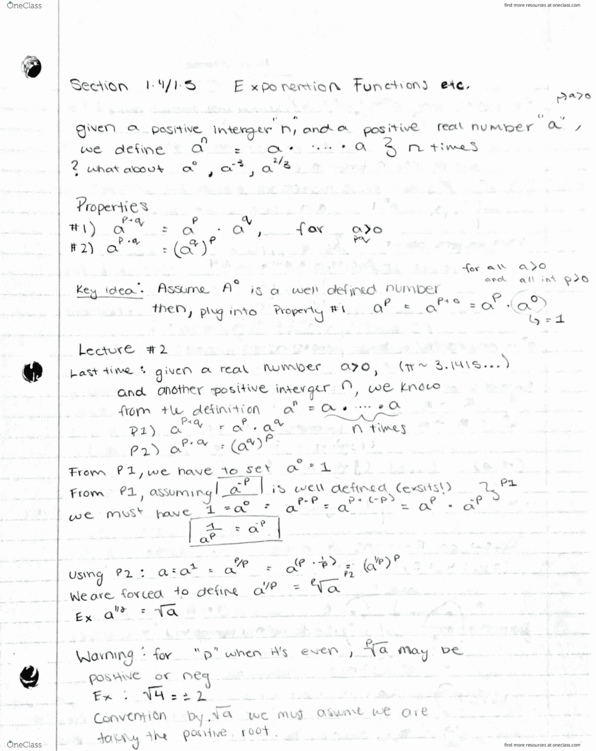 OneClass
find more resources at oneclass.com
Section 1.4/1.5 Exponention Functions etc.
→a>0
given a positive interger "n", and a positive real number "a",
we define aⁿ = a · ..... · a } n times
? what about a⁰, a⁻³, a^{2/3}
Properties
#1) a^{p+q} = a^p · a^q, for a>0
#2) a^{p·q} = (a^q)^p
for all a>0
and all int p>0
Key idea: Assume A⁰ is a well defined number
then, plug into Property #1 a^p = a^{p+0} = a^p · (a⁰)
↳ = 1
Lecture #2
Last time: given a real number a>0, (π ~ 3.1415...)
and another positive interger n, we know
from the definition aⁿ = a · .... · a
n times
P1) a^{p+q} = a^p · a^q
P2) a^{p·q} = (a^q)^p
From P1, we have to set a⁰ = 1
From P1, assuming a^{-p} is well defined (exsits!) } P1
we must have 1 = a⁰ = a^{p-p} = a^{p+(-p)} = a^p · a^{-p}
1/a^p = a^{-p}
Using P2: a = a¹ = a^{p/p} = a^{(p · 1/p)} =_{P2} (a^{1/p})^p
We are forced to define a^{1/p} = ᵖ√a
Ex a^{1/2} = √a
Warning: for "p" when it's even, ᵖ√a may be
positive or neg
Ex: √4 = ± 2
Convention by √a we must assume we are
taking the positive root.
OneClass
find more resources at oneclass.com